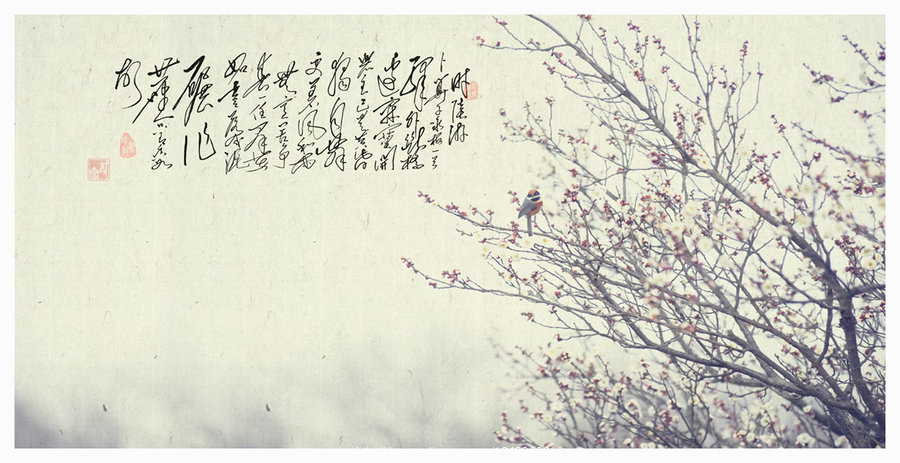 陆游
卜算子咏梅
驿外断桥
边寂寞开
无主已是黄昏
独自愁
更著风和雨
无意苦争
春一任群芳
妒零落成泥
碾作
尘只有香如
故